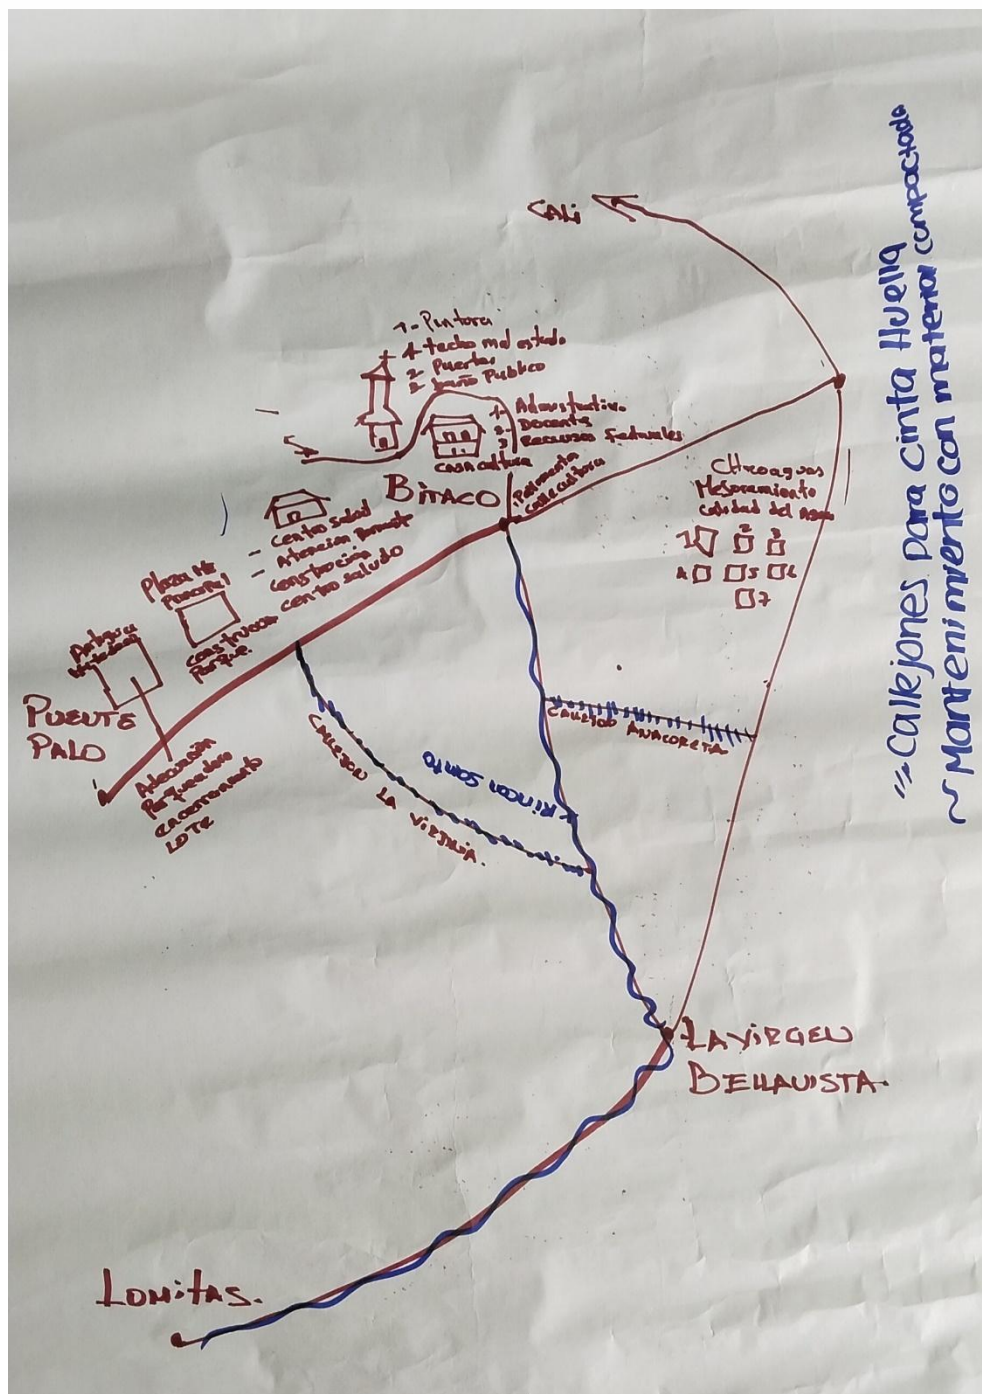 CALi
1- Pintura
1- techo mal estado
2- Puertas
2- baño Publico
1-
2- Docente
3 Recursos Federales
CASA cultura
BiTACO
Pavimenta
calle cultura
Mejoramiento
calidad del Agua
1 2 3
4 5 6
7
- centro salud
- Atencion
- construcción
centro
Plaza
construccion
Parque
Antigua
PUENTE
PALO
Adecuación
Parqueadero
LOTE
CALLEJON LA VIRJINIA.
x Rincon Santo
ANACORETA
LA VIRGEN
BELLAVISTA.
LOMITAS.
Callejones para Cinta Huella
~ Mantenimiento con material compactado